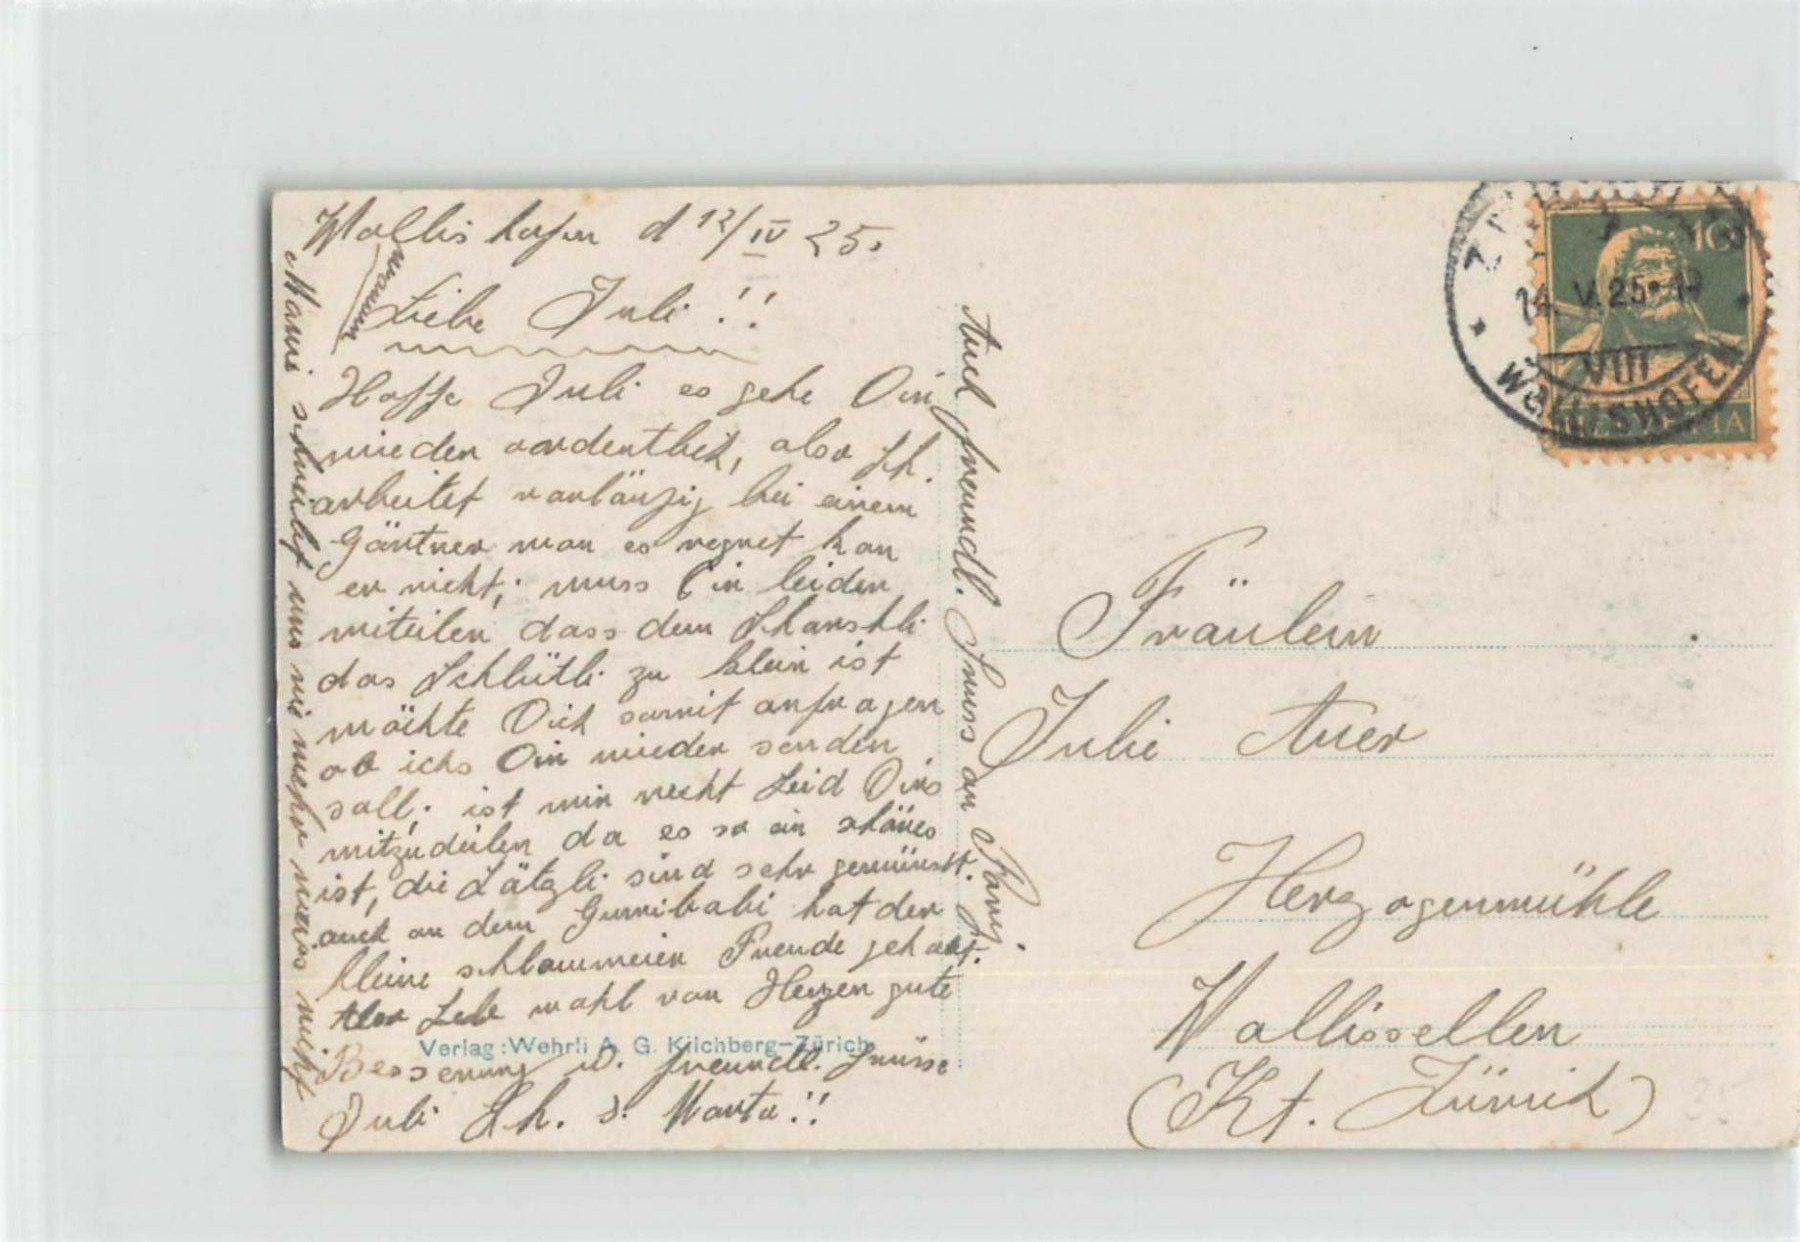 Wollishofen d 12/IV 25.
Liebe Juli!!
Hoffe Juli es gehe Dir
wieder vordentlich, also Sch.
arbeitet vorläufig bei einem
Gärtner wan es regnet kan
er nicht; muss Dir leider
miteilen dass dem Schanshli
das Schlütli zu klein ist
möchte Dich somit anfragen
ob ichs Dir wieder senden
soll; ist mir recht Leid Dirs
mitzudeilen da es so ein schönes
ist, die Lätzli sind sehr gewünscht.
auch an dem Gumibabi hat der
kleine schlaumeier Freude gehabt.
Lebe wohl von Herzen gute
Besserung u. freundl. Grüsse
Juli Sch. s. Marta!!
Mami schreibt uns nie mehr weiss nicht
warum
Auch freundl. Gruss an Fany.
Verlag: Wehrli A. G. Kilchberg-Zürich
Fräulein
Juli Auer
Herzogenmühle
Wallissellen
(Kt. Zürich)
10
14. V. 25
VIII
WOLLISHOFEN